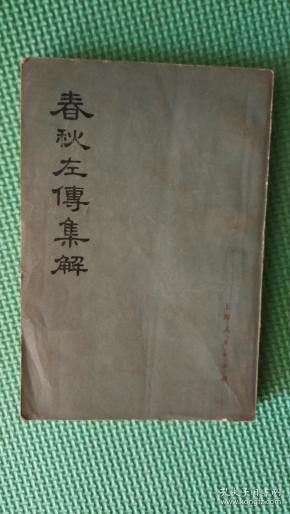 春秋左傳集解
上海人民出版社
孔夫子旧书网